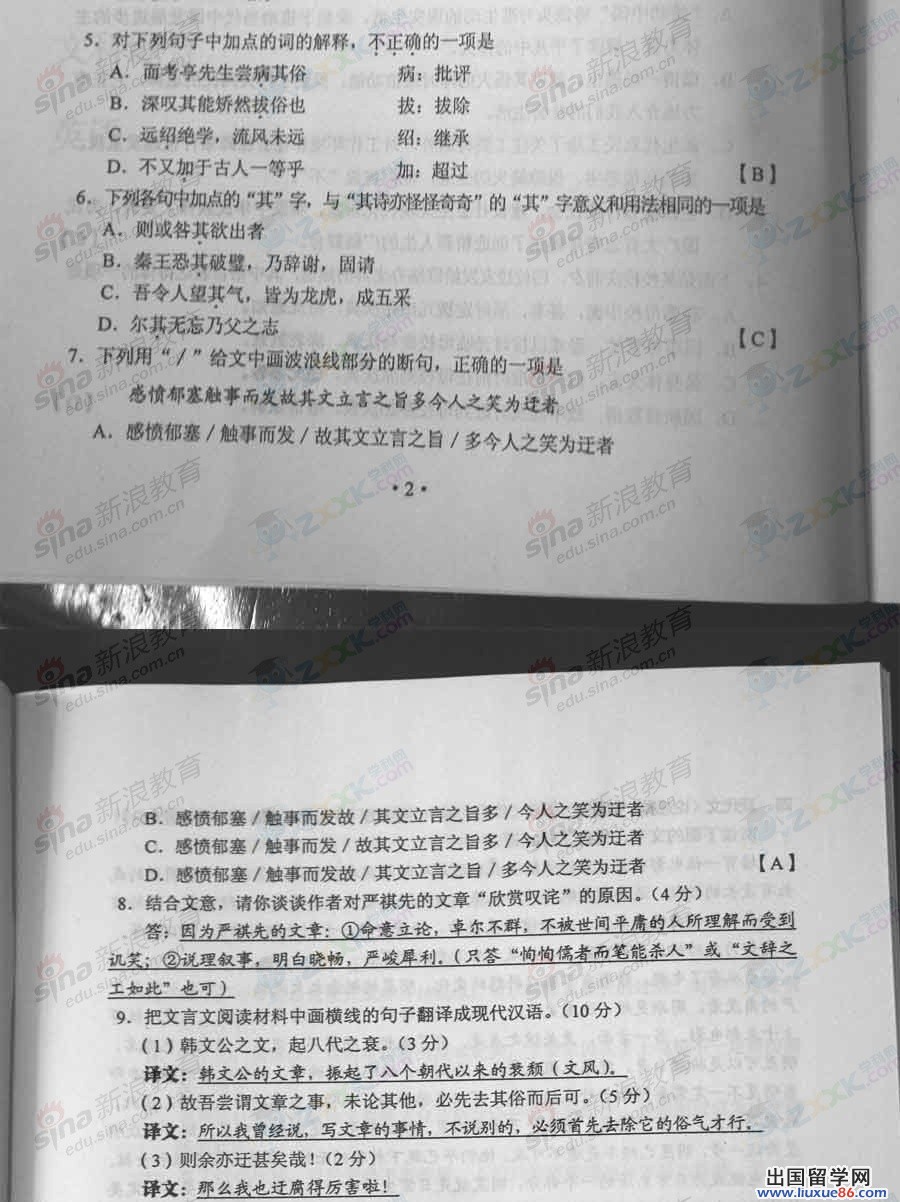 5．对下列句子中加点的词的解释，不正确的一项是
A．而考亭先生尝病其俗 病：批评
B．深叹其能矫然拔俗也 拔：拔除
C．远绍绝学，流风未远 绍：继承
D．不又加于古人一等乎 加：超过 【B】
6．下列各句中加点的“其”字，与“其诗亦怪怪奇奇”的“其”字意义和用法相同的一项是
A．则或咎其欲出者
B．秦王恐其破璧，乃辞谢，固请
C．吾令人望其气，皆为龙虎，成五采
D．尔其无忘乃父之志 【C】
7．下列用“／”给文中画波浪线部分的断句，正确的一项是
感愤郁塞触事而发故其文立言之旨多今人之笑为迂者
A．感愤郁塞／触事而发／故其文立言之旨／多今人之笑为迂者
·2·
B．感愤郁塞／触事而发故／其文立言之旨多／今人之笑为迂者
C．感愤郁塞／触事而发／故其文立言之旨多／今人之笑为迂者
D．感愤郁塞／触事而发故／其文立言之旨／多今人之笑为迂者 【A】
8．结合文意，请你谈谈作者对严祺先的文章“欣赏叹诧”的原因。（4分）
答：因为严祺先的文章：①命意立论，卓尔不群，不被世间平庸的人所理解而受到
讥笑；②说理叙事，明白晓畅，严峻犀利。（只答“恂恂儒者而笔能杀人”或“文辞之
工如此”也可）
9．把文言文阅读材料中画横线的句子翻译成现代汉语。（10分）
（1）韩文公之文，起八代之衰。（3分）
译文：韩文公的文章，振起了八个朝代以来的衰颓（文风）。
（2）故吾尝谓文章之事，未论其他，必先去其俗而后可。（5分）
译文：所以我曾经说，写文章的事情，不说别的，必须首先去除它的俗气才行。
（3）则余亦迂甚矣哉！（2分）
译文：那么我也迂腐得厉害啦！
sina新浪教育
edu.sina.com.cn
ZXXK.com
学科网
出国留学网
www.liuxue86.com